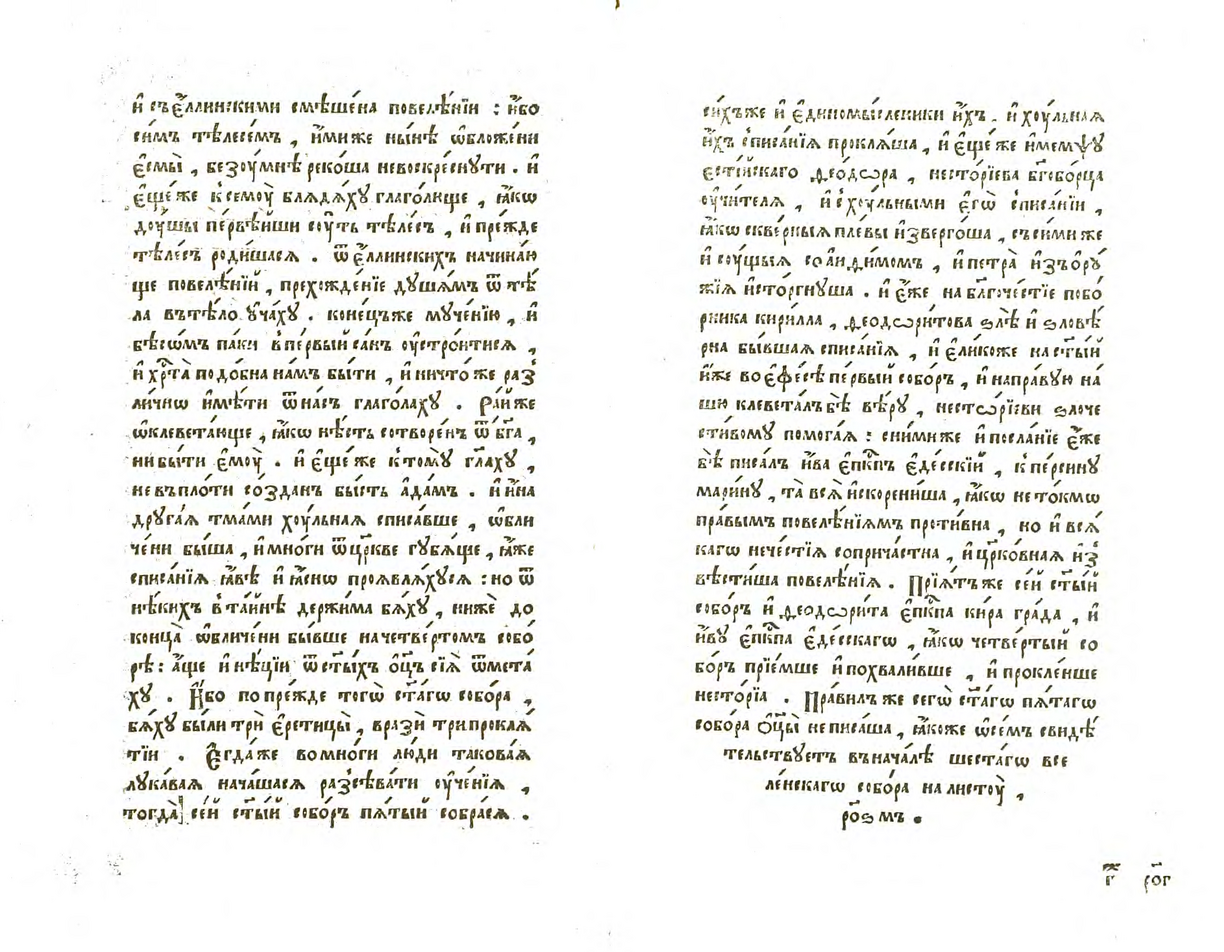 и҆ съє҆́ллинскими смѣше́на повелѣ́нїи : и҆́бо
си́мъ тѣлесе́мъ , и҆́миже ны́нѣ ѡ҆бложе́ни
є҆смы̀ , безꙋ́мнѣ реко́ша невоскре́снꙋти . и҆
є҆ще́ же ксемоу̀ блѧдѧ́хꙋ глаго́люще , ꙗ҆́кѡ
доу́шы пе́рвѣйши соу́ть тѣле́съ , и҆ пре́жде
тѣле́съ роди́шасѧ . ѿ є҆́ллинскихъ начина́ю
ще повелѣ́нїй , прехожде́нїе дꙋша́мъ ѿ тѣ́
ла втѣ́ло ᲂу҆ча́хꙋ . коне́цъже мꙋче́нїю , и҆
бѣсѡ́мъ па́ки впе́рвый са́нъ ᲂу҆стро́итисѧ ,
и҆ хрⷭ҇та̀ подо́бна на́мъ бы́ти , и҆ ничто́ же раз̾
ли́чнѡ и҆мѣ́ти ѿ на́съ глаго́лахꙋ . Ра́й же
ѡ҆клевета́юще , ꙗ҆́кѡ нѣ́сть сотворе́нъ ѿ бг҃а ,
ни бы́ти є҆моу̀ . и҆ є҆ще́ же ктомꙋ̀ гл҃ахꙋ ,
не въ пло́ти со́зданъ бы́сть а҆да́мъ . и҆ и҆́на
дрꙋга́ѧ тма́ми хоу́льнаѧ списа́вше , ѡ҆бли
че́ни бы́ша , и҆ мно́ги ѿ цр҃кве гꙋбѧ́ще , ꙗ҆́же
списа́нїѧ ꙗ҆́вѣ и҆ ꙗ҆́снѡ проѧвлѧ́хꙋсѧ : но ѿ
нѣ́кихъ вта́йнѣ держи́ма бѧ́хꙋ , нижѐ до
конца̀ ѡ҆бличе́ни бы́вше на четве́ртом собо́
рѣ : а҆́ще и҆ нѣ́цїи ѿ ст҃ы́хъ ѻ҆ц҃ъ сїѧ̀ ѿмета́
хꙋ . И҆́бо по пре́жде тогѡ̀ ст҃а́гѡ собо́ра ,
бѧ́хꙋ бы́ли трѝ є҆ретицы̀ , вразѝ трипроклѧ́
тїи . Є҆гда́же во мно́ги лю́ди такова́ѧ
лꙋка́ваѧ нача́шасѧ разсѣва́ти ᲂу҆че́нїѧ ,
тогда̀ се́й ст҃ы́й собо́ръ пѧ́тый собра́сѧ .
си́хъже и҆ є҆диномы́сленики и҆́хъ . и҆ хоу́льнаѧ
и҆́хъ списа́нїѧ проклѧ́ша , и҆ є҆ще́ же и҆ мемѱꙋ
єсті́йскаго ѳео́дѡра , несто́рїева бг҃обо́рца
ᲂу҆чи́телѧ , и҆ с хоу́льными є҆гѡ̀ списа́нїи ,
ꙗ҆́кѡ скве́рныѧ пле́вы и҆зверго́ша , съ си́ми же
и҆ соу́щыѧ со а҆нѳи́мом , и҆ петра̀ и҆зъ ѻ҆рꙋ́
жїѧ и҆сто́ргнꙋша . и҆ є҆́же на бл҃гоче́стїе побо́
рника кири́лла , ѳеодѡри́това ѕлѣ̀ и҆ ѕловѣ́
рна бы́вшаѧ списа́нїѧ , и҆ є҆ли́коже на ст҃ы́й
и҆́же во є҆фе́сѣ пе́рвый собо́ръ , и҆ на пра́вꙋю на́
шꙋ клевета́лъ бѣ̀ вѣ́рꙋ , нестѡ́рїеви ѕлоче
сти́вомꙋ помога́ѧ : сни́миже и҆ посла́нїе є҆́же
бѣ̀ писа́лъ и҆́ва є҆пⷭ҇кпъ є҆де́сскїй , кпе́рсинꙋ
мари́нꙋ , та̀ всѧ̀ и҆скорени́ша , ꙗ҆́кѡ не то́кмѡ
пра́вымъ повелѣ́нїѧмъ проти́вна , но и҆ всѧ́
кагѡ нече́стїѧ соприча́стна , и҆ цр҃ко́внаѧ и҆з̾
вѣсти́ша повелѣ́нїѧ . Прїѧ́тъ же се́й ст҃ы́й
собо́ръ и҆ ѳеодѡри́та є҆пⷭ҇кпа ки́ра гра́да , и҆
и҆́вꙋ є҆пⷭ҇кпа є҆де́сскагѡ , ꙗ҆́кѡ четве́ртый со
бо́ръ прїе́мше и҆ похвали́вше , и҆ прокле́нше
несто́рїа . Пра́вилъ же сегѡ̀ ст҃а́гѡ пѧ́тагѡ
собо́ра ѻ҆ц҃ы̀ не писа́ша , ꙗ҆́коже ѡ҆ се́мъ свидѣ́
тельствꙋетъ в нача́лѣ шеста́гѡ все
ле́нскагѡ собо́ра на листоу̀ ,
роѕ мъ .
г҃ рог҃